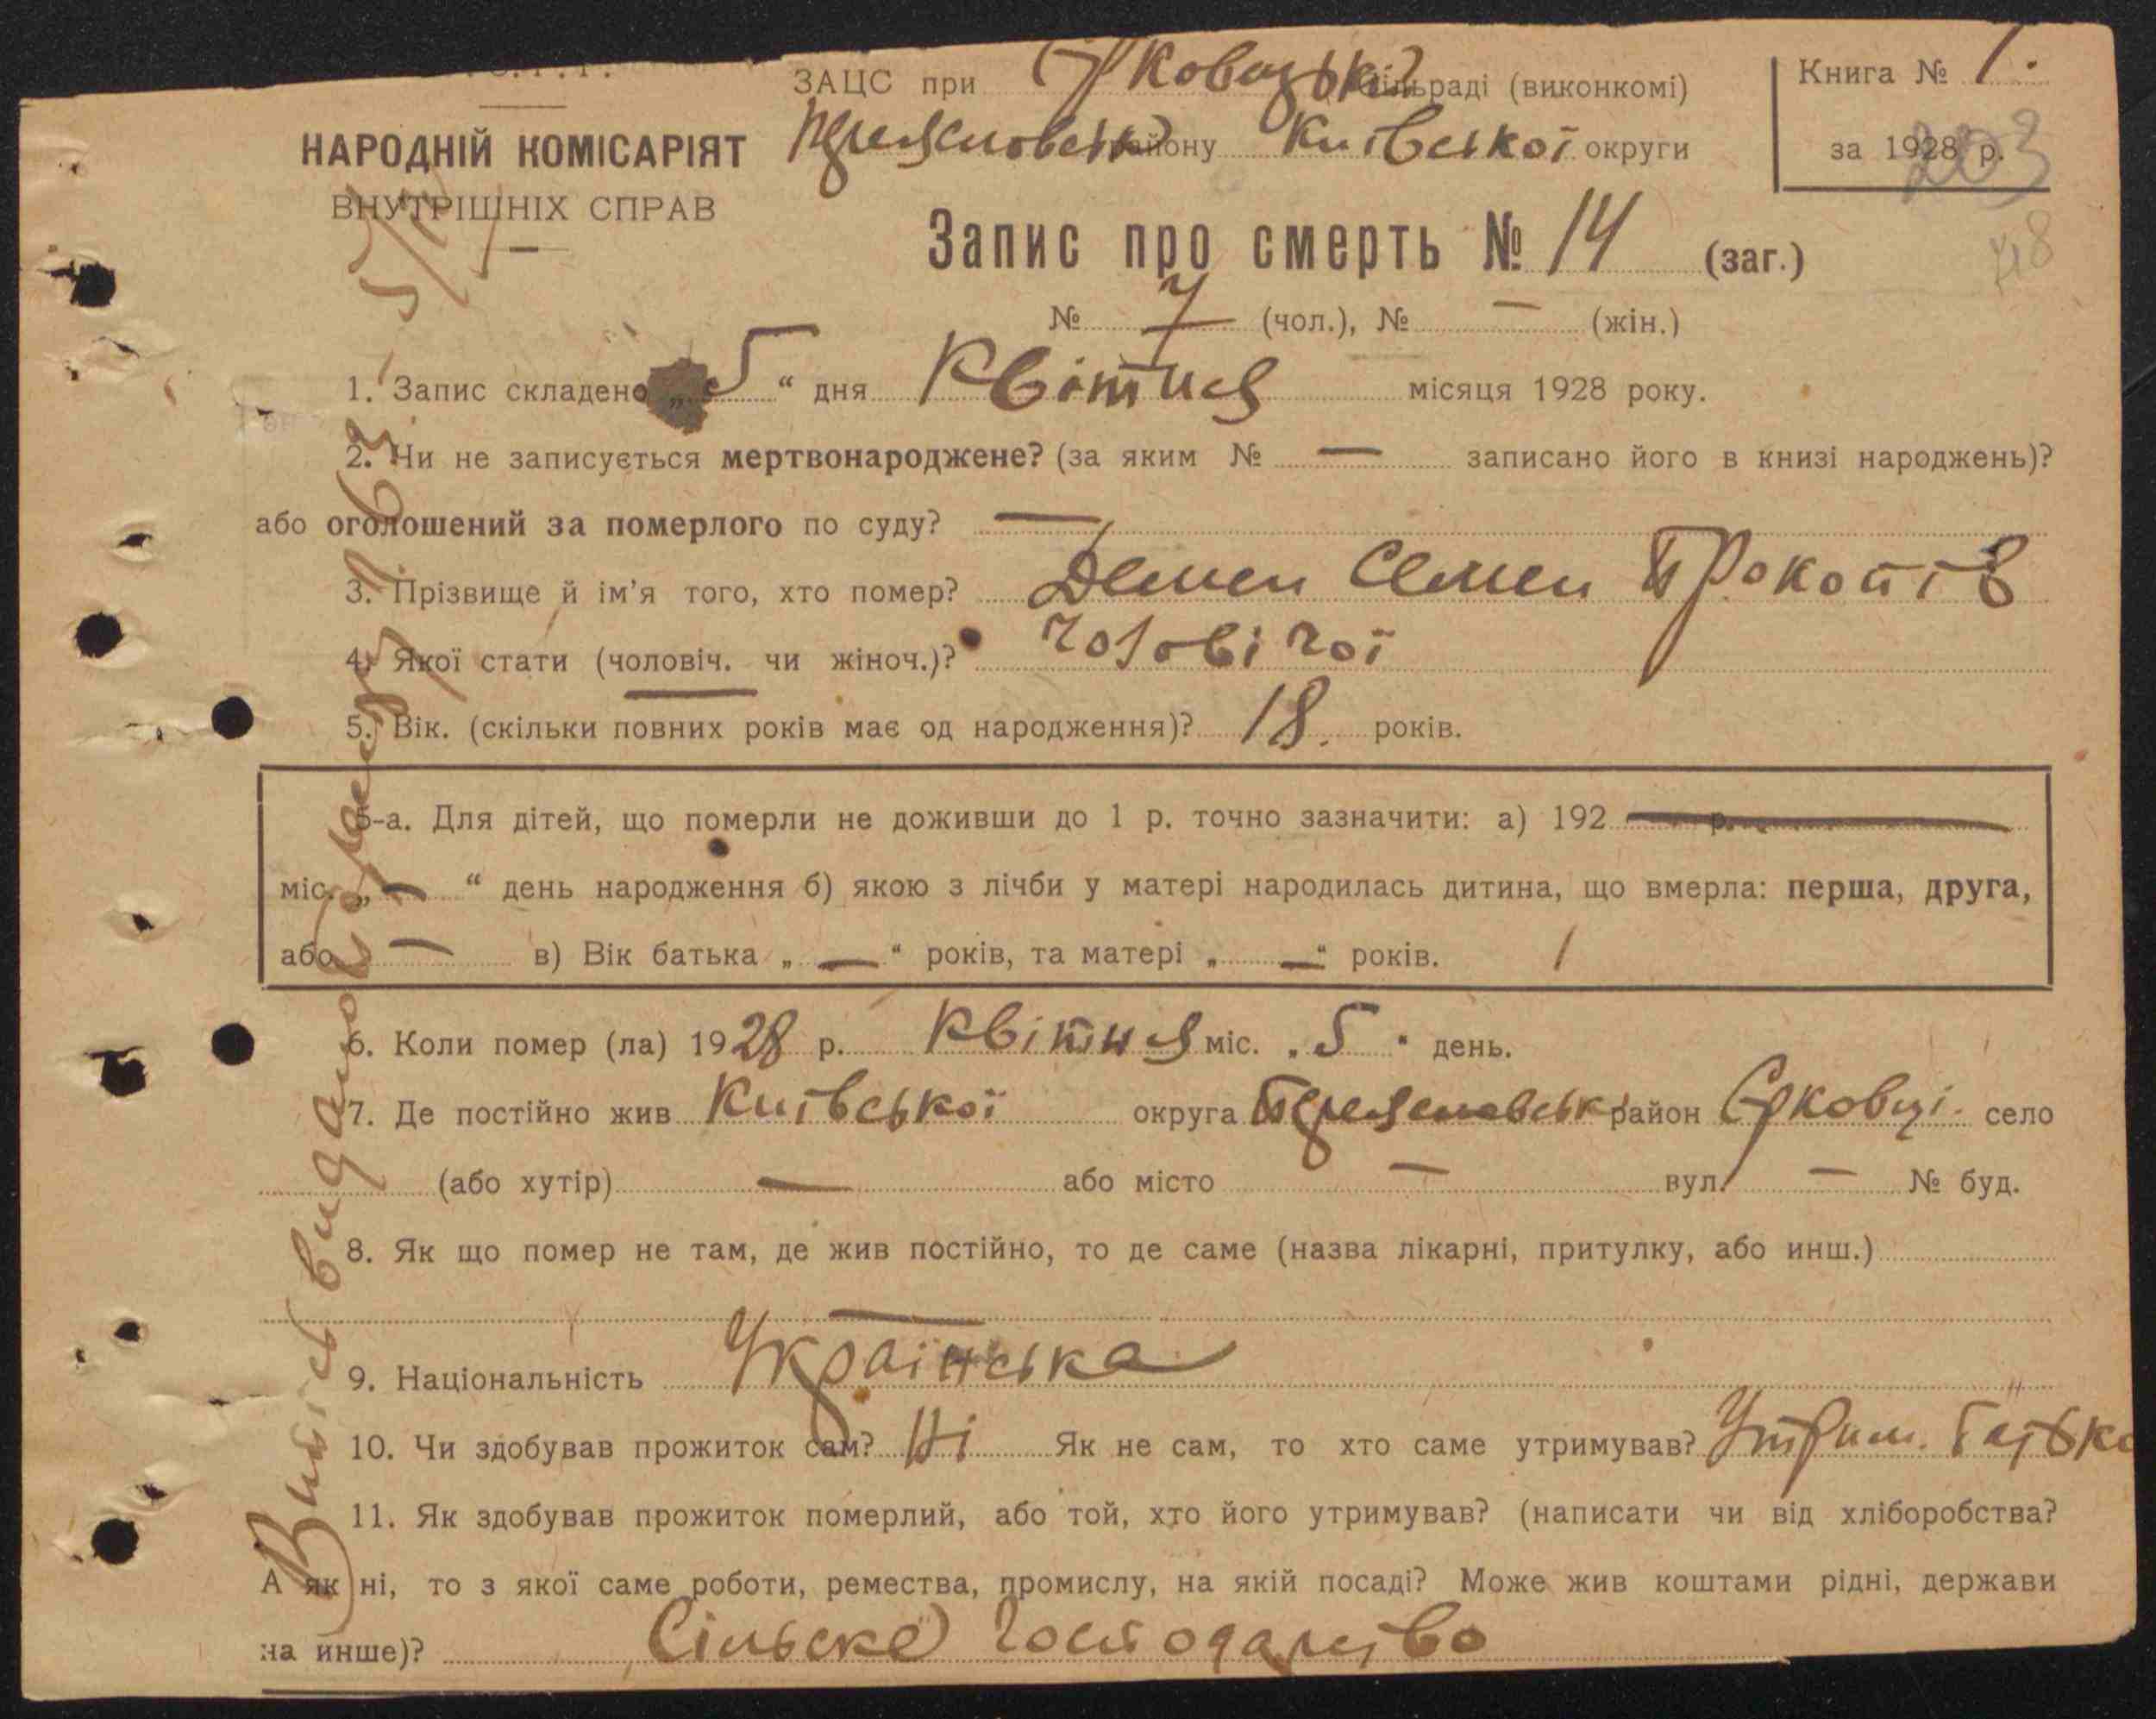 ЗАЦС при Єрковецькій сільраді (виконкомі)
Книга № 1.
НАРОДНІЙ КОМІСАРІЯТ
району Київської округи
за 1928 р.
203
ВНУТРІШНІХ СПРАВ
Запис про смерть № 14 (заг.)
№ 7 (чол.), № — (жін.)
1. Запис складено „ 5 “ дня Квітня місяця 1928 року.
2. Чи не записується мертвонароджене? (за яким № — записано його в книзі народжень)?
або оголошений за померлого по суду? —
3. Прізвище й ім'я того, хто помер? Демен Семен Прокопів
4. Якої стати (чоловіч. чи жіноч.)? чоловічої
5. Вік. (скільки повних років має од народження)? 18. років.
5-а. Для дітей, що померли не доживши до 1 р. точно зазначити: а) 192 — р.
міс. „ — “ день народження б) якою з лічби у матері народилась дитина, що вмерла: перша, друга,
або — в) Вік батька „ — “ років, та матері „ — “ років.
6. Коли помер (ла) 1928 р. Квітня міс. „ 5 “ день.
7. Де постійно жив Київської округа район Єрковці село
(або хутір) — або місто — вул. — № буд.
8. Як що помер не там, де жив постійно, то де саме (назва лікарні, притулку, або инш.)
—
9. Національність Українська
10. Чи здобував прожиток сам? Ні Як не сам, то хто саме утримував? Утрим. батька
11. Як здобував прожиток померлий, або той, хто його утримував? (написати чи від хліборобства?
А як ні, то з якої саме роботи, ремества, промислу, на якій посаді? Може жив коштами рідні, держави
на инше)? Сільське господарство